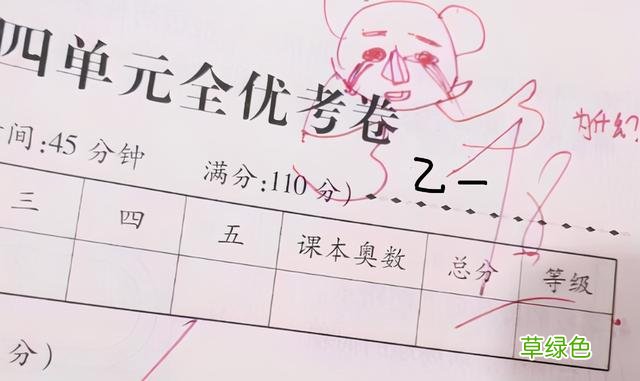 四单元全优考卷
为什么?
间:45 分钟 满分:110 分)
乙一
18
三 四 五 课本奥数 总分 等级
分)
草绿色